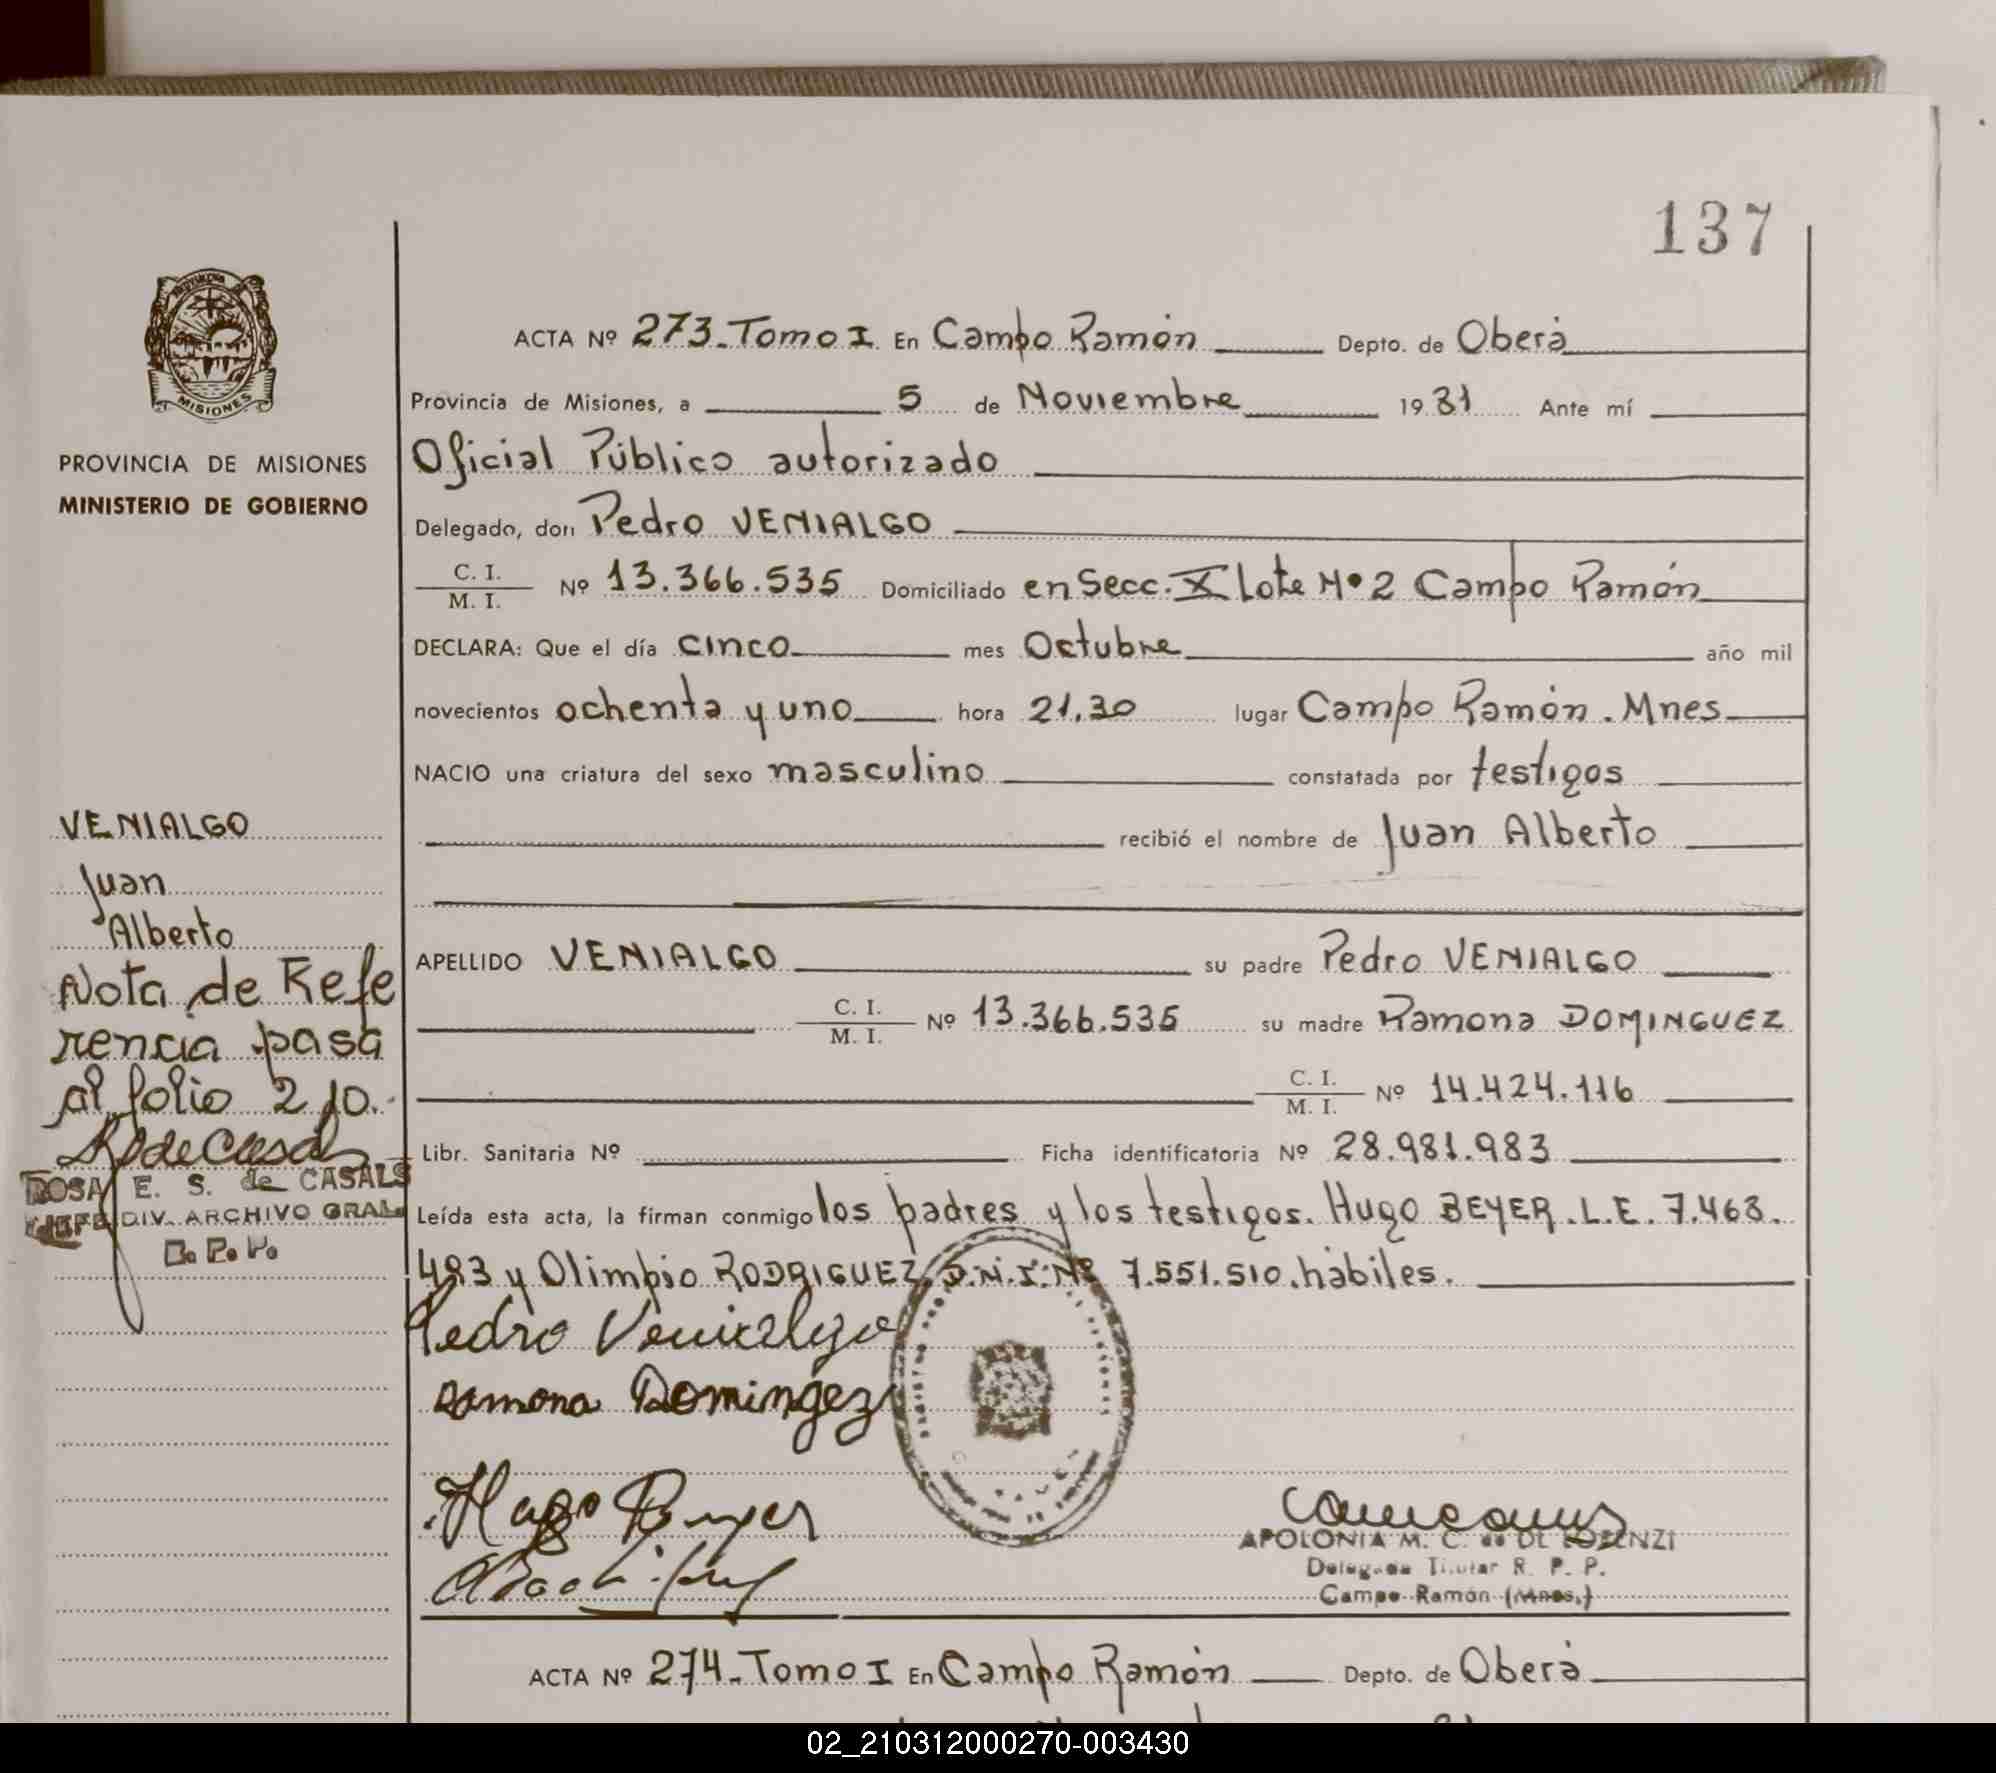 137
ACTA Nº 273-Tomo I En Campo Ramón Depto. de Oberá
Provincia de Misiones, a 5 de Noviembre 1981 Ante mí
PROVINCIA DE MISIONES
MINISTERIO DE GOBIERNO
MISIONES
Oficial Público autorizado
Delegado, don Pedro VENIALGO
C. I.
M. I. Nº 13.366.535 Domiciliado en Secc. X Lote Nº 2 Campo Ramón
DECLARA: Que el día cinco mes Octubre año mil
novecientos ochenta y uno hora 21,30 lugar Campo Ramón. Mnes
NACIO una criatura del sexo masculino constatada por testigos
recibió el nombre de Juan Alberto
VENIALGO
Juan
Alberto
Nota de Refe
rencia pasa
al folio 210.
ROSA E. S. de CASALS
JEFE DIV. ARCHIVO GRAL.
APELLIDO VENIALGO su padre Pedro VENIALGO
C. I.
M. I. Nº 13.366.535 su madre Ramona DOMINGUEZ
C. I.
M. I. Nº 14.424.116
Libr. Sanitaria Nº Ficha identificatoria Nº 28.981.983
Leída esta acta, la firman conmigo los padres y los testigos. Hugo BEYER. L.E. 7.468.
483 y Olimpio RODRIGUEZ D.N.I. Nº 7.551.510. hábiles.
Pedro Venialgo
Ramona Domingez
Hugo Beyer
APOLONIA M. C. de DE LORENZI
Delegada Titular R. P. P.
Campo Ramón (Mnes.)
ACTA Nº 274-Tomo I En Campo Ramón Depto. de Oberá
02_210312000270-003430